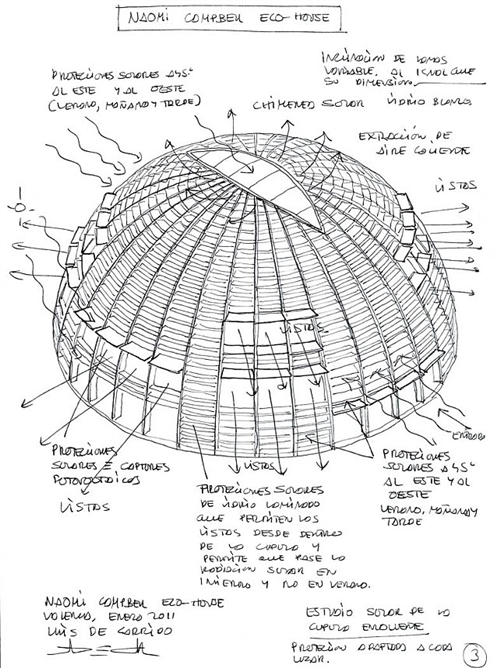 NAOMI CAMPBELL ECO-HOUSE
PROTECCIONES SOLARES A 45º
AL ESTE Y AL OESTE
(VERANO, MAÑANA Y TARDE)
INCLINACION DE LAMAS
VARIABLE, AL IGUAL QUE
SU DIMENSION
CHIMENEA SOLAR VIDRIO BLANCO
EXTRACCIÓN DE
AIRE CALIENTE
VISTAS
VISTAS
ENTRADA
PROTECCIONES
SOLARES E CAPTORES
FOTOVOLTAICOS
VISTAS
VISTAS
PROTECCIONES SOLARES
DE VIDRIO LAMINADO
QUE PERMITEN LAS
VISTAS DESDE DENTRO
DE LA CUPULA Y
PERMITE QUE PASE LA
RADIACION SOLAR EN
INVIERNO Y NO EN VERANO.
PROTECCIONES
SOLARES A 45º
AL ESTE Y AL
OESTE
VERANO, MAÑANA Y
TARDE
NAOMI CAMPBELL ECO-HOUSE
VALENCIA, ENERO 2011
LUIS DE GARRIDO
ESTUDIO SOLAR DE LA
CUPULA ENVOLVENTE
PROTECCION ADAPTADA A CADA
LUGAR.
3